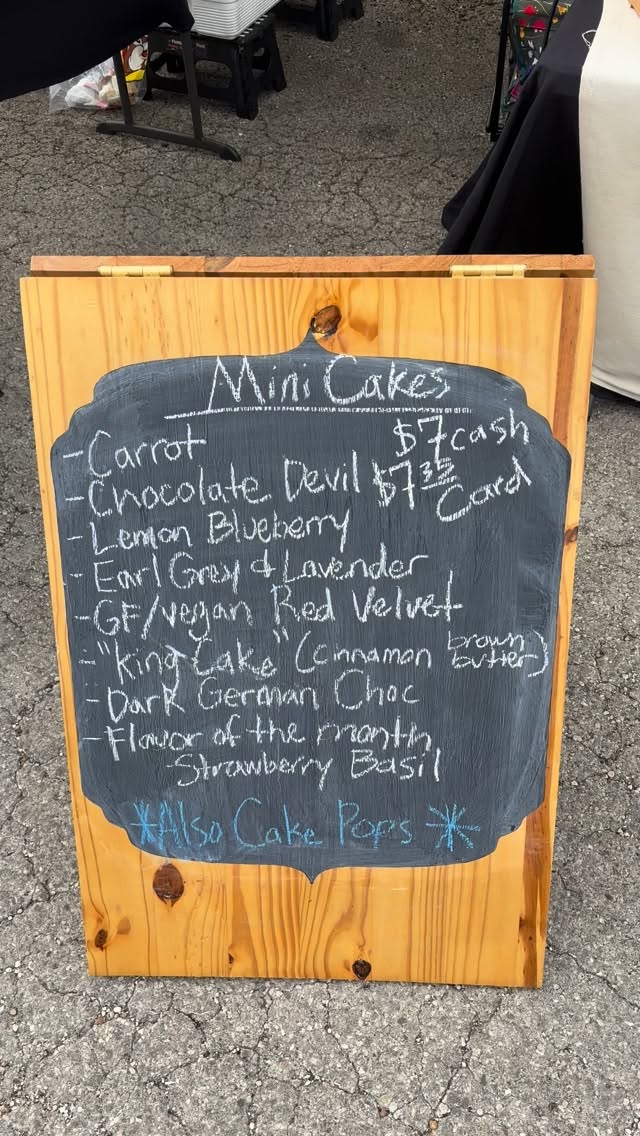 Mini Cakes
$7 cash
- Carrot
- Chocolate Devil $7.35 Card
- Lemon Blueberry
- Earl Grey & Lavender
- GF/vegan Red Velvet
- "King Cake" (cinnamon brown butter)
- Dark German Choc
- Flavor of the month
- Strawberry Basil
*Also Cake Pops *